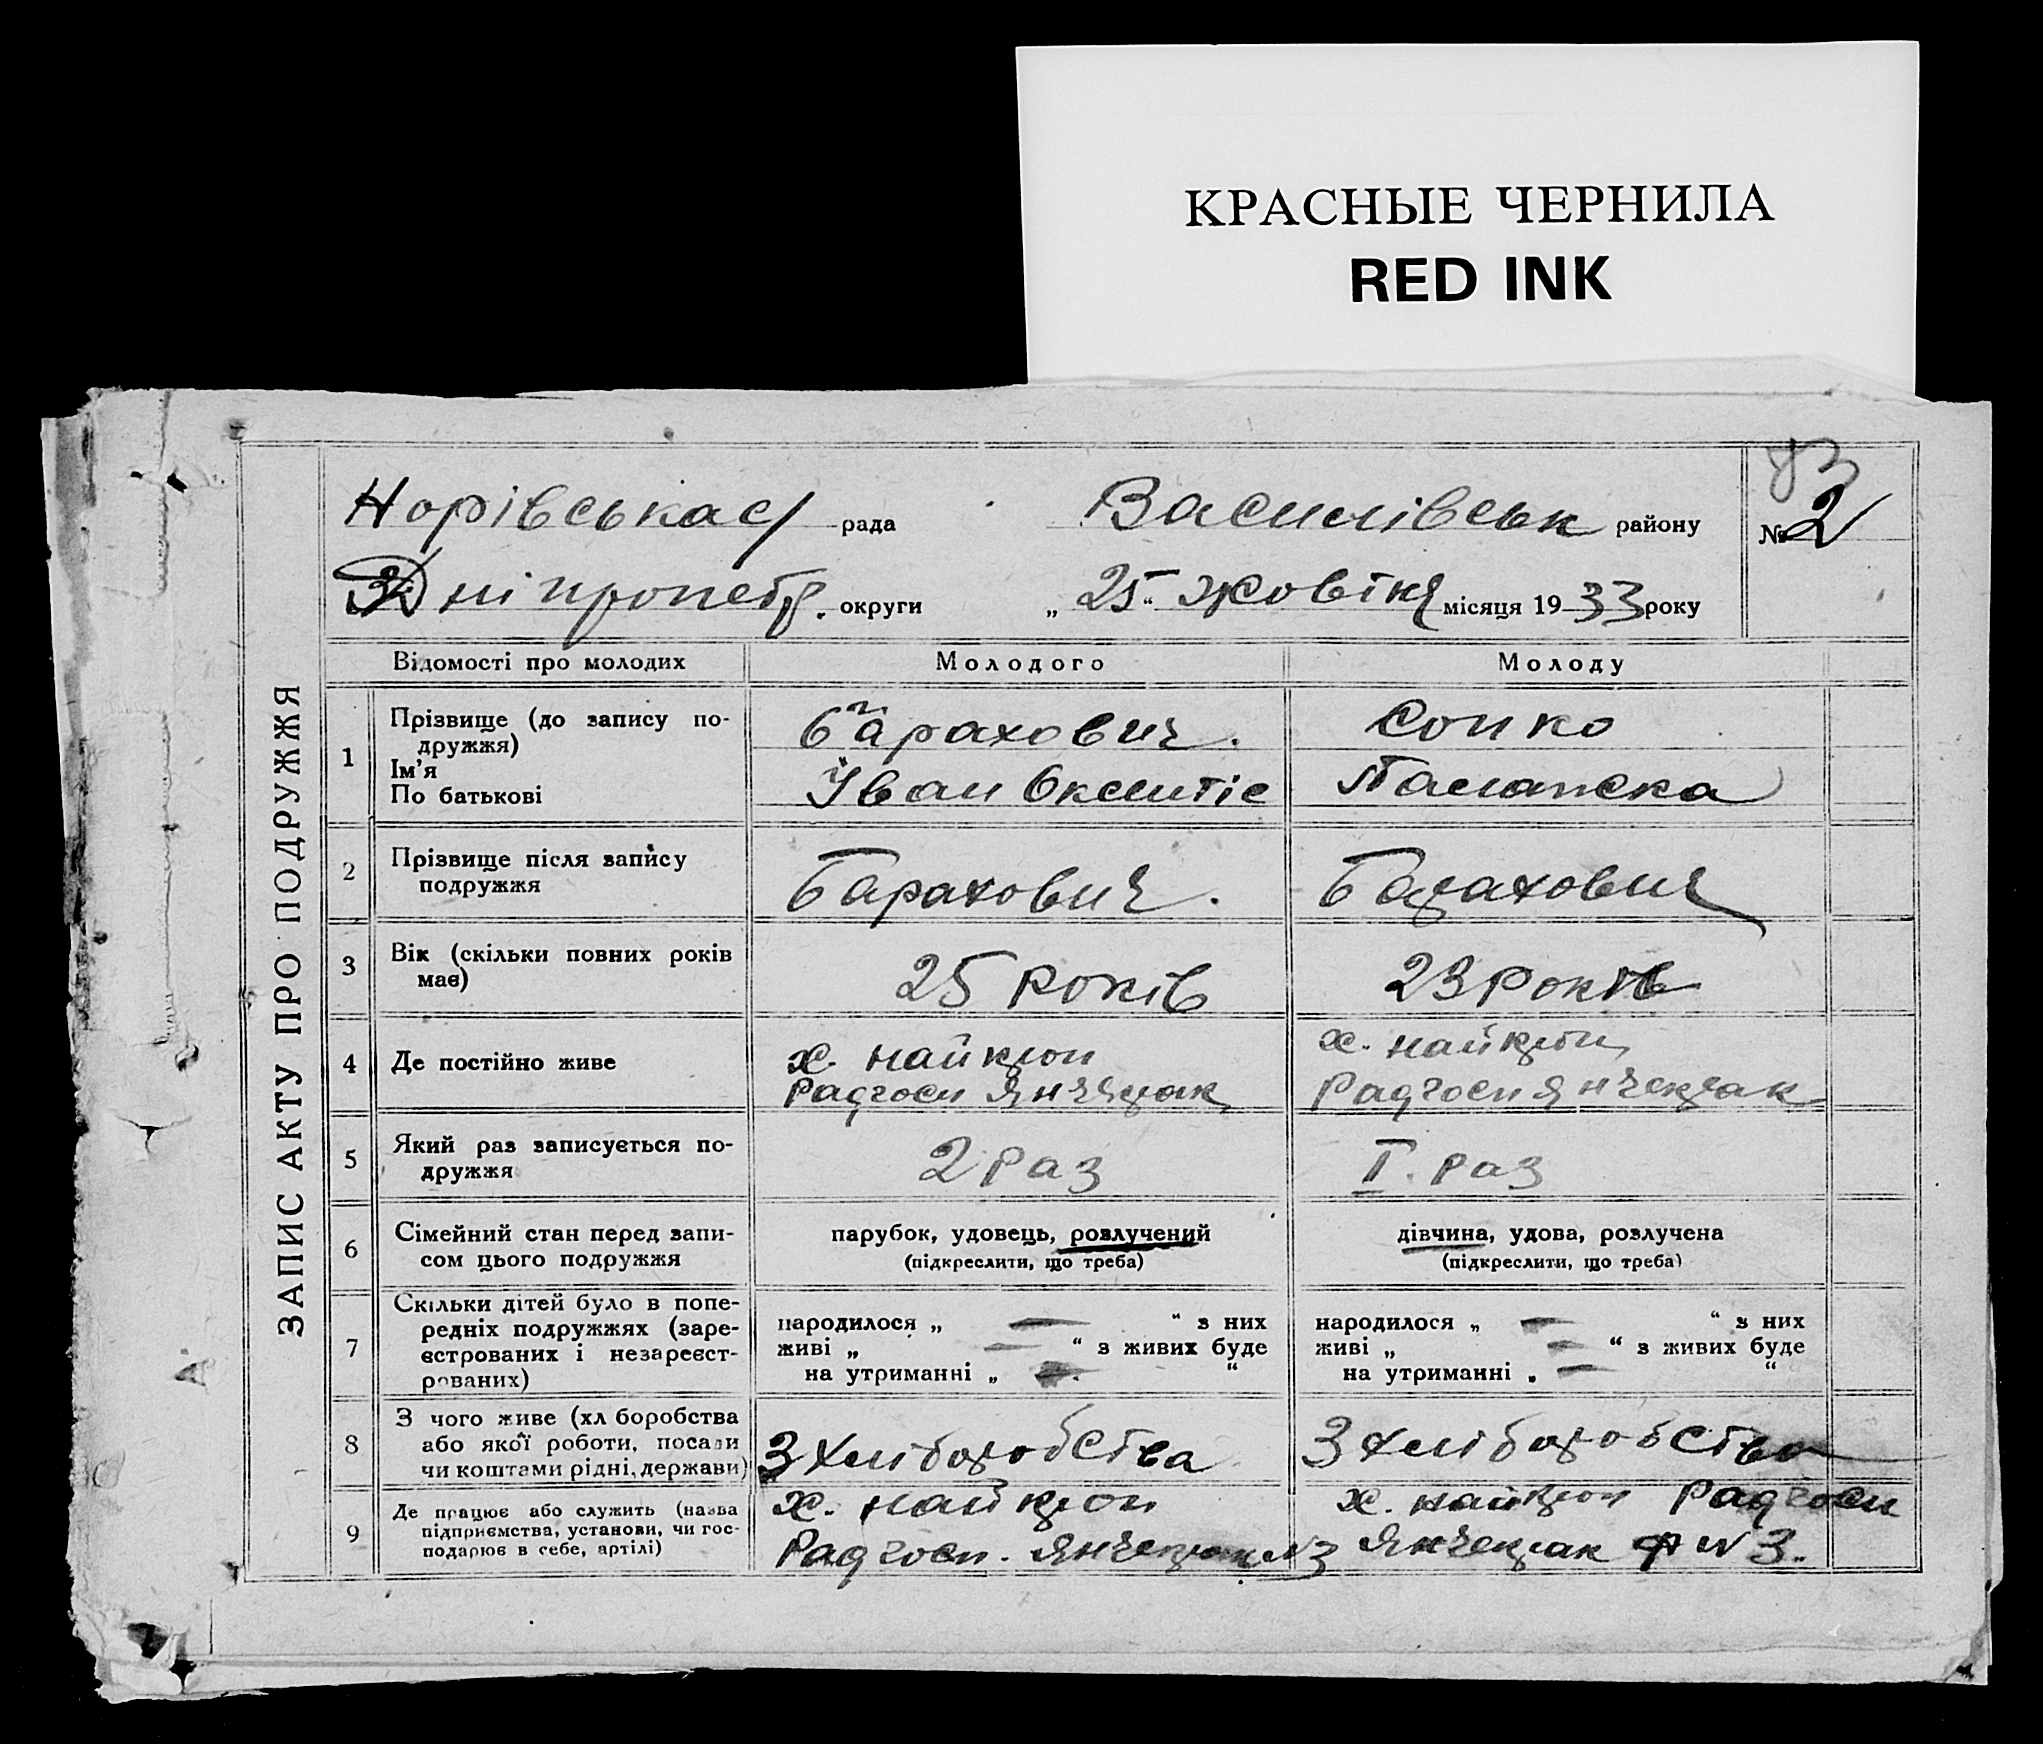 КРАСНЫЕ ЧЕРНИЛА
RED INK
83
Норівська с/ рада Василівськ району № 2
Дніпропетр. округи „ 25 “ жовтня місяця 1933 року
ЗАПИС АКТУ ПРО ПОДРУЖЖЯ
Відомості про молодих Молодого Молоду
1 Прізвище (до запису по-
дружжя)
Ім'я
По батькові
Барахович.
Іван
Сопко
2 Прізвище після запису
подружжя
Барахович.
Барахович
3 Вік (скільки повних років
має)
25 років
23 років
4 Де постійно живе
х. найкрон
Радгосп Янчекрак
х. найкрон
Радгосп Янчекрак
5 Який раз записується по-
дружжя
2 раз
I. раз
6 Сімейний стан перед запи-
сом цього подружжя
парубок, удовець, розлучений
(підкреслити, що треба)
дівчина, удова, розлучена
(підкреслити, що треба)
7 Скільки дітей було в попе-
редніх подружжях (заре-
єстрованих і незареєст-
рованих)
народилося „ — “ з них
живі „ — “ з живих буде
на утриманні „ — “
народилося „ — “ з них
живі „ — “ з живих буде
на утриманні „ — “
8 З чого живе (хл боробства
або якої роботи, посади
чи коштами рідні, держави)
З хліборобства
З хліборобства
9 Де працює або служить (назва
підприємства, установи, чи гос-
подарює в себе, артілі)
х. найкрон
Радгосп. Янчекрак N3
х. найкрон Радгосп
Янчекрак N 3.